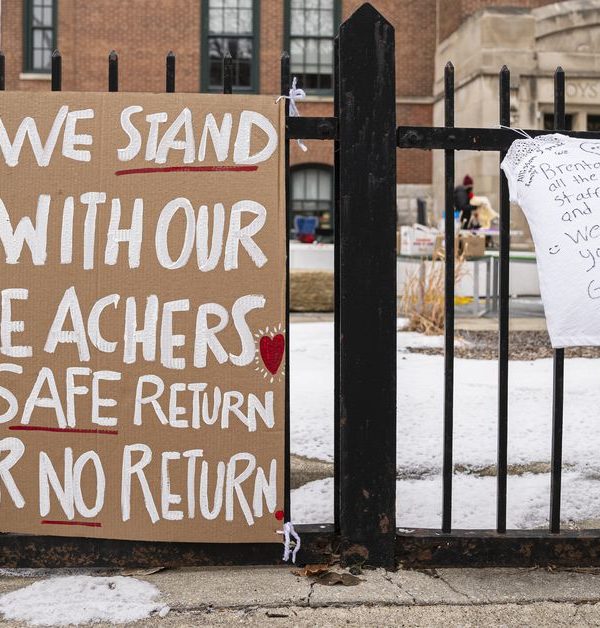 WE STAND
WITH OUR
EACHERS
SAFE RETURN
R NO RETURN
OYS
Brenta
all the
staff
and
We
yo
G